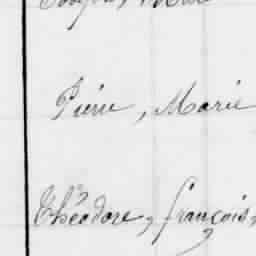 Pierre, Marie
Théodore, françois,